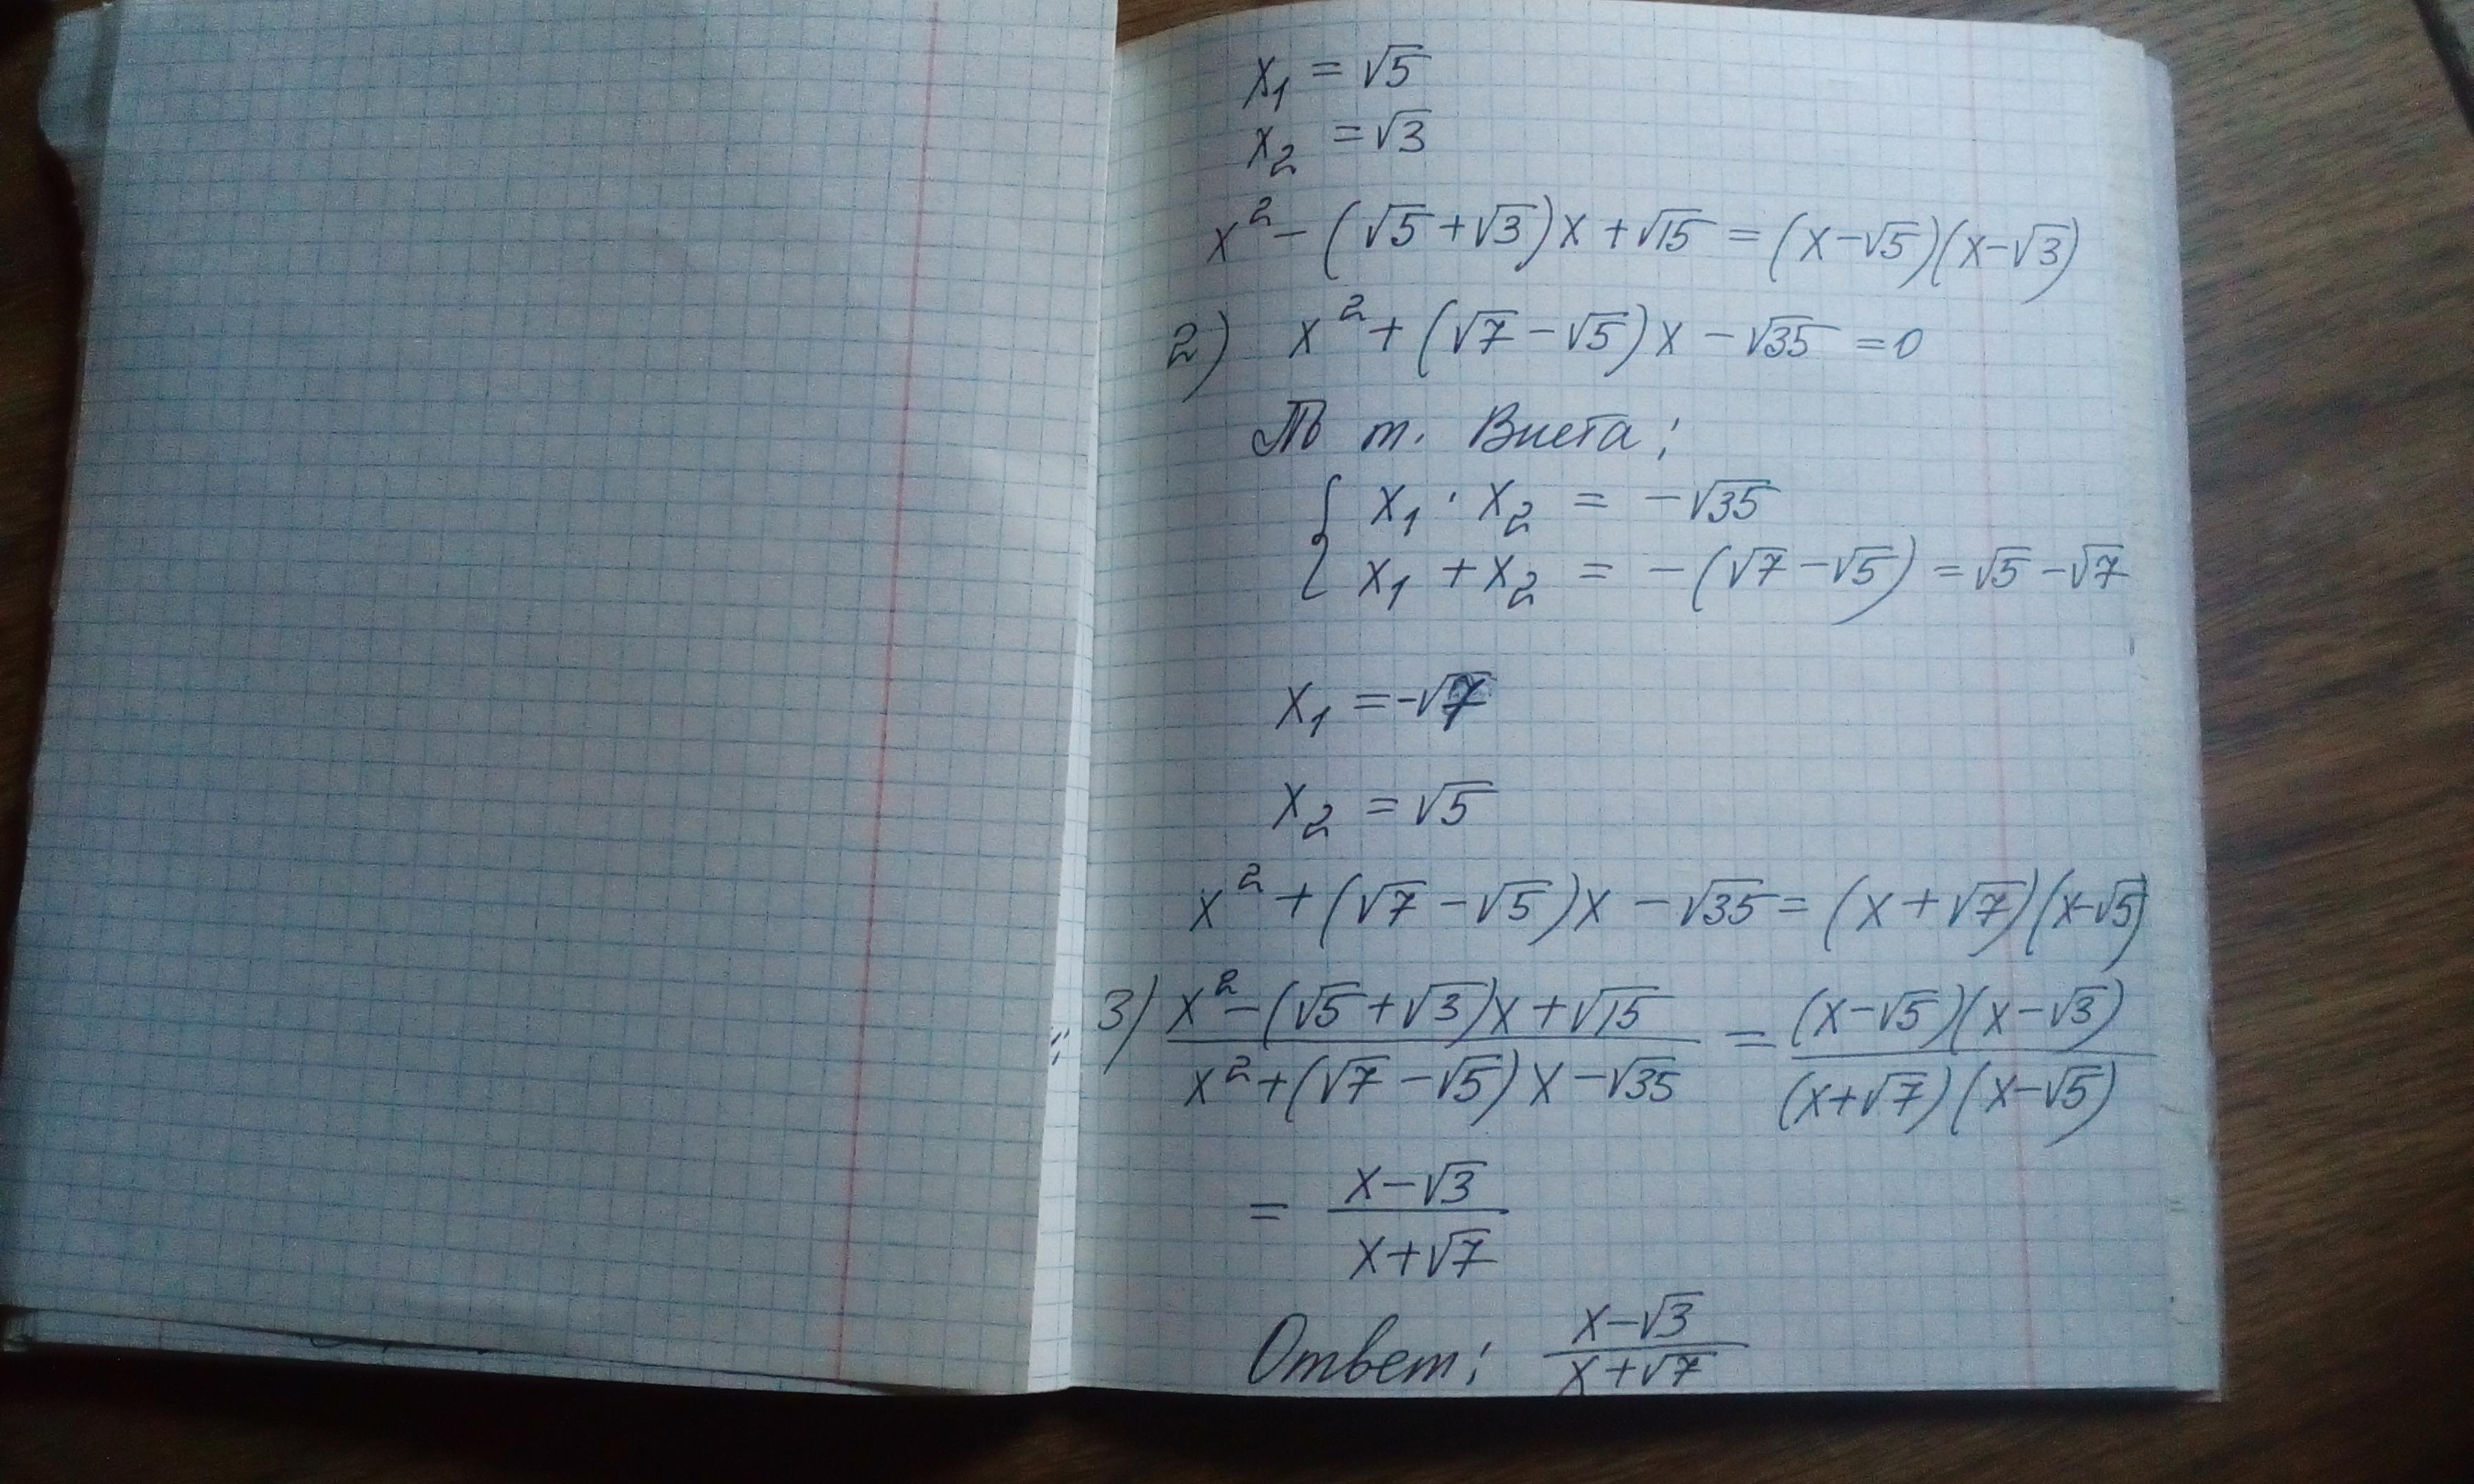 x₁ = √5
x₂ = √3
x² - (√5 + √3)x + √15 = (x-√5)(x-√3)
2) x² + (√7 - √5)x - √35 = 0
По т. Виета:
{ x₁ · x₂ = -√35
x₁ + x₂ = -(√7 - √5) = √5 - √7
x₁ = -√7
x₂ = √5
x² + (√7 - √5)x - √35 = (x + √7)(x-√5)
3) (x² - (√5 + √3)x + √15) / (x² + (√7 - √5)x - √35) = ((x-√5)(x-√3)) / ((x+√7)(x-√5))
= (x-√3) / (x+√7)
Ответ: (x-√3) / (x+√7)